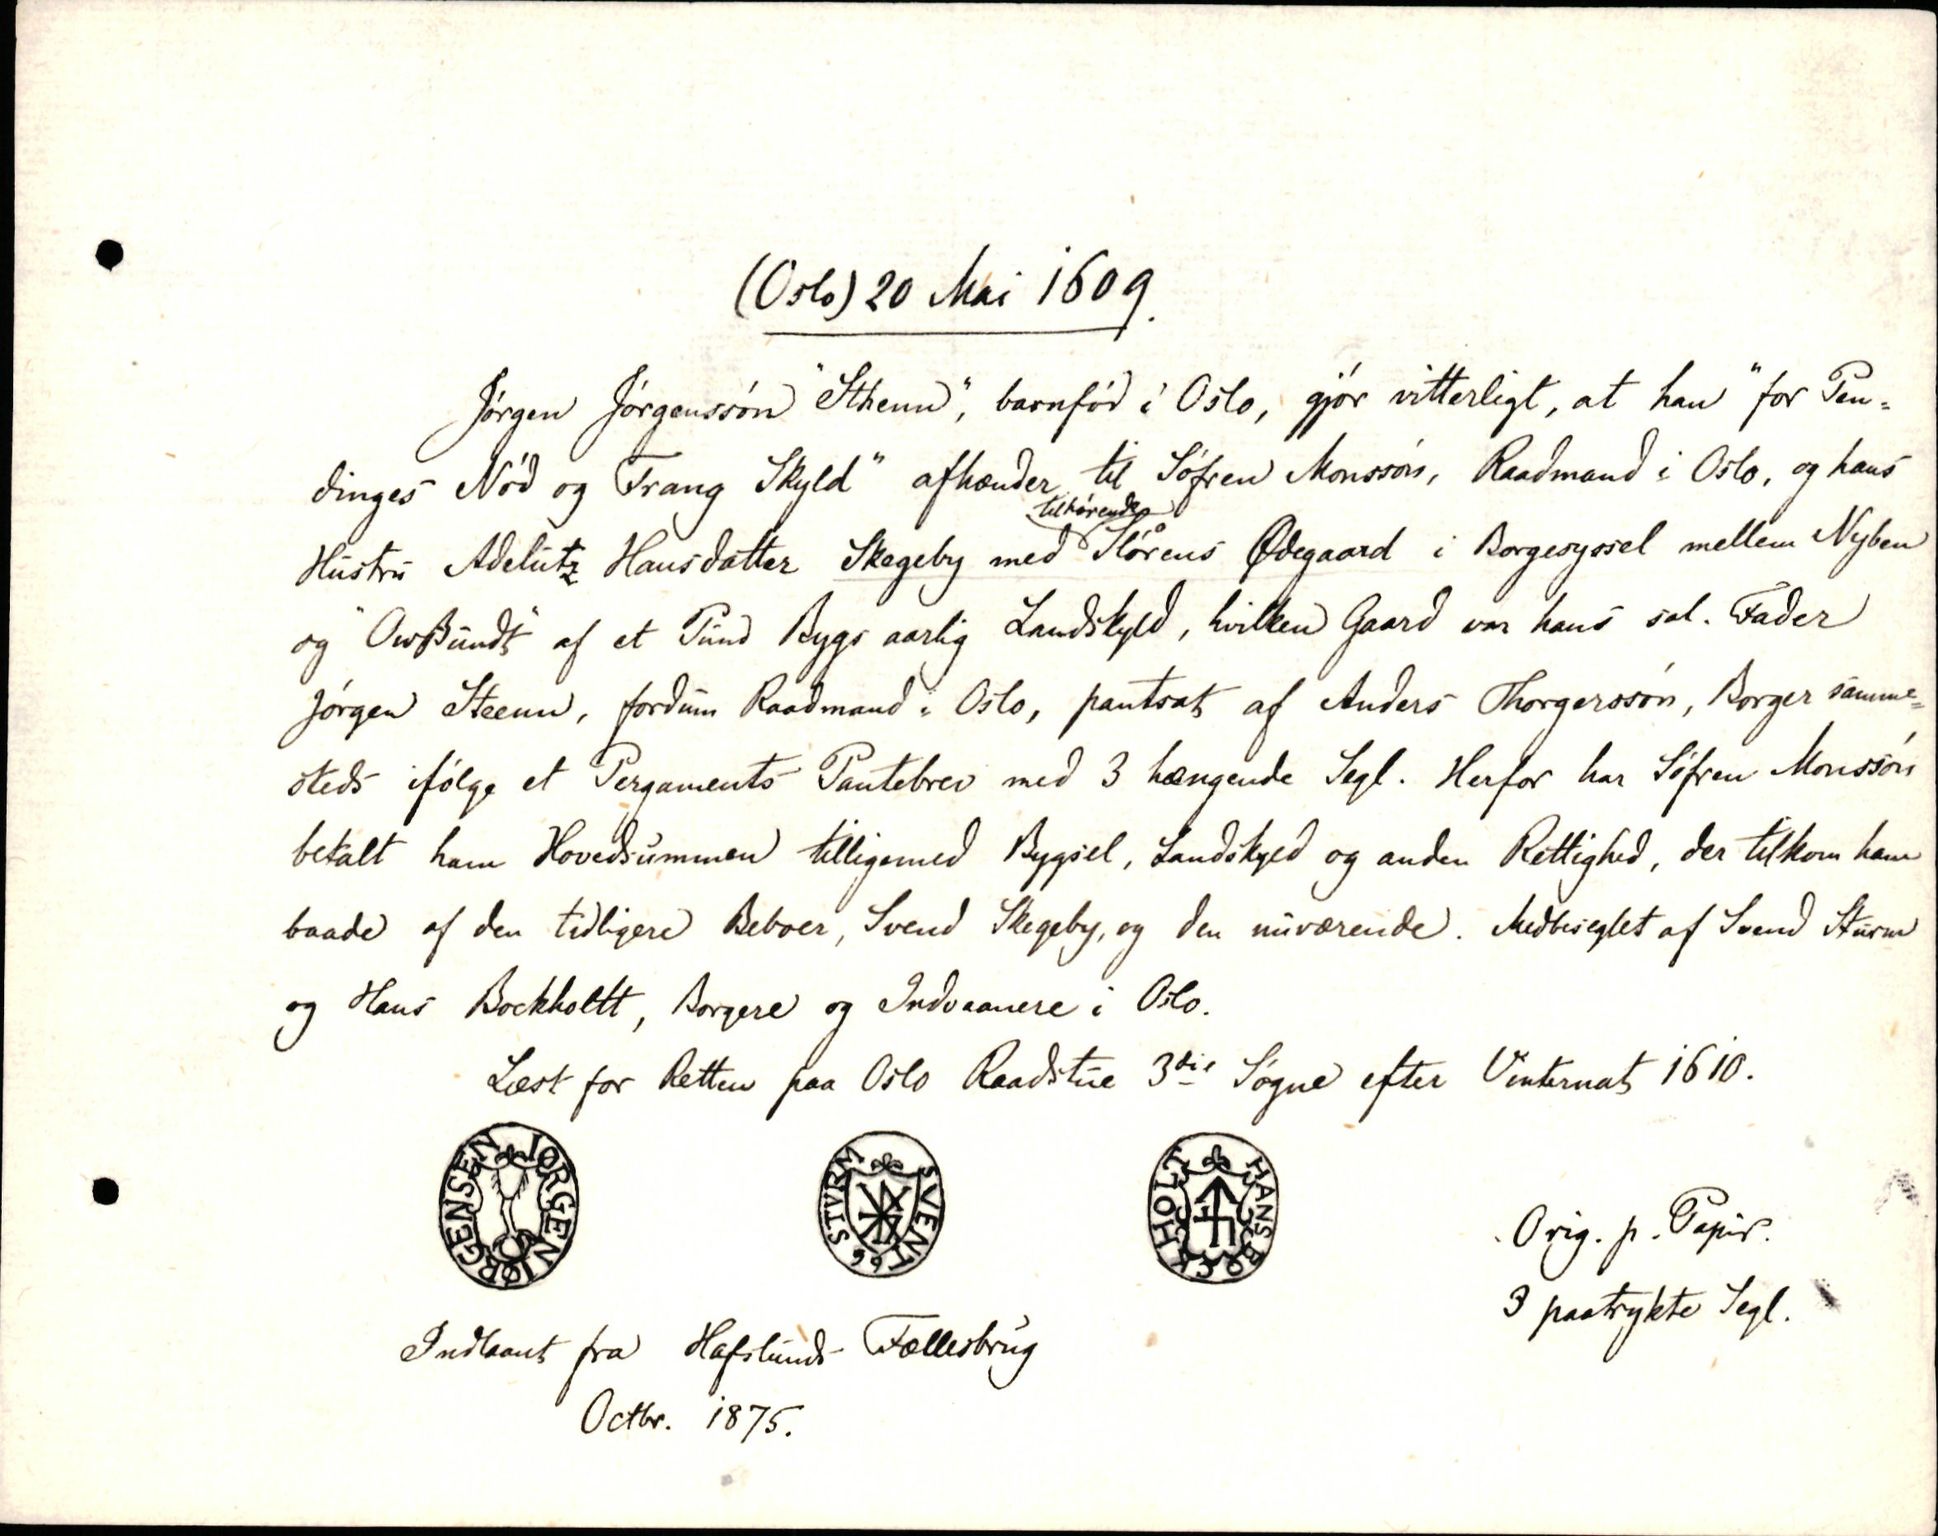 (Oslo) 20 Mai 1609.
Jørgen Jørgenssøn "Sthenn", barnfød i Oslo, gjør vitterligt, at han "for Pen-
dinges Nød og Trang Skyld" afhænder til Søfren Monssøn, Raadmand i Oslo, og hans
tilhørende
Hustru Adelutz Hansdatter Skegeby med Slørens Ødegaard i Borgesyssel mellem Nyben
og "Owßundt" af et Pund Bygs aarlig Landskyld, hvilken Gaard var hans sal. Fader
Jørgen Steenn, fordum Raadmand i Oslo, pantsat af Anders Thorgerssøn, Borger samme-
steds ifølge et Pergaments Pantebrev med 3 hængende Segl. Herfor har Søfren Monssøn
betalt ham Hovedsummen tilligemed Bygsel, Landskyld og anden Rettighed, der tilkom ham
baade af den tidligere Beboer, Svend Skegeby, og den nuværende. Medbeseglet af Svend Sturm
og Hans Bockholtt, Borgere og Indvaanere i Oslo.
Læst for Retten paa Oslo Raadstue 3die Søgne efter Vinternat 1610.
IØRGEN IØRGENSEN
SVENT STVRM
HANS BOCKHOLT
Orig. p. Papir.
3 paatrykte Segl.
Indlaant fra Hafslunds Fællesbrug
Octbr. 1875.